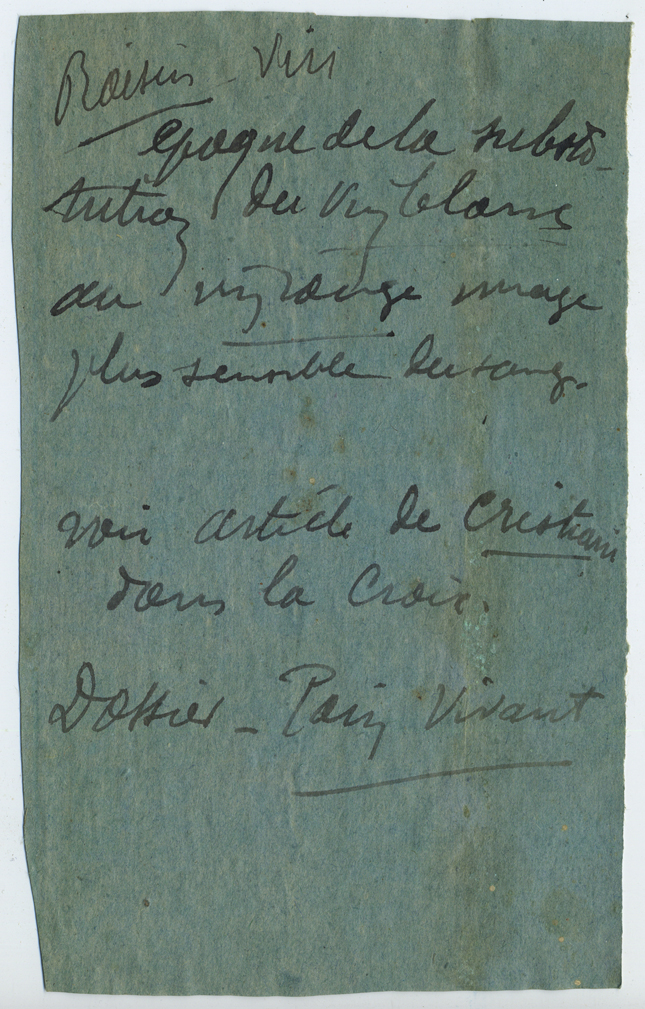 Raisin - Vin
époque de la substi-
tution du vin blanc
au vin rouge image
plus sensible du sang.
voir article de Cristiani
dans la Croix.
Dossier - Pain Vivant